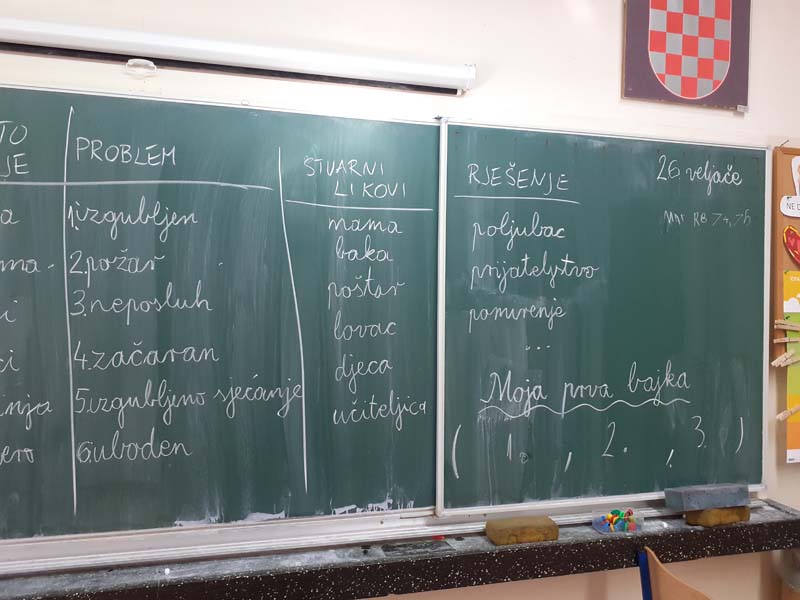 TO
JE
a
ma.
i
i
inja
ero
PROBLEM
1. izgubljen
2. požar
3. neposluh
4. začaran
5. izgubljeno sjećanje
6. uboden
STVARNI
LIKOVI
mama
baka
poštar
lovac
djeca
učiteljica
RJEŠENJE
poljubac
prijateljstvo
pomirenje
...
26 veljače
Moja prva bajka
( 1. , 2. , 3. )